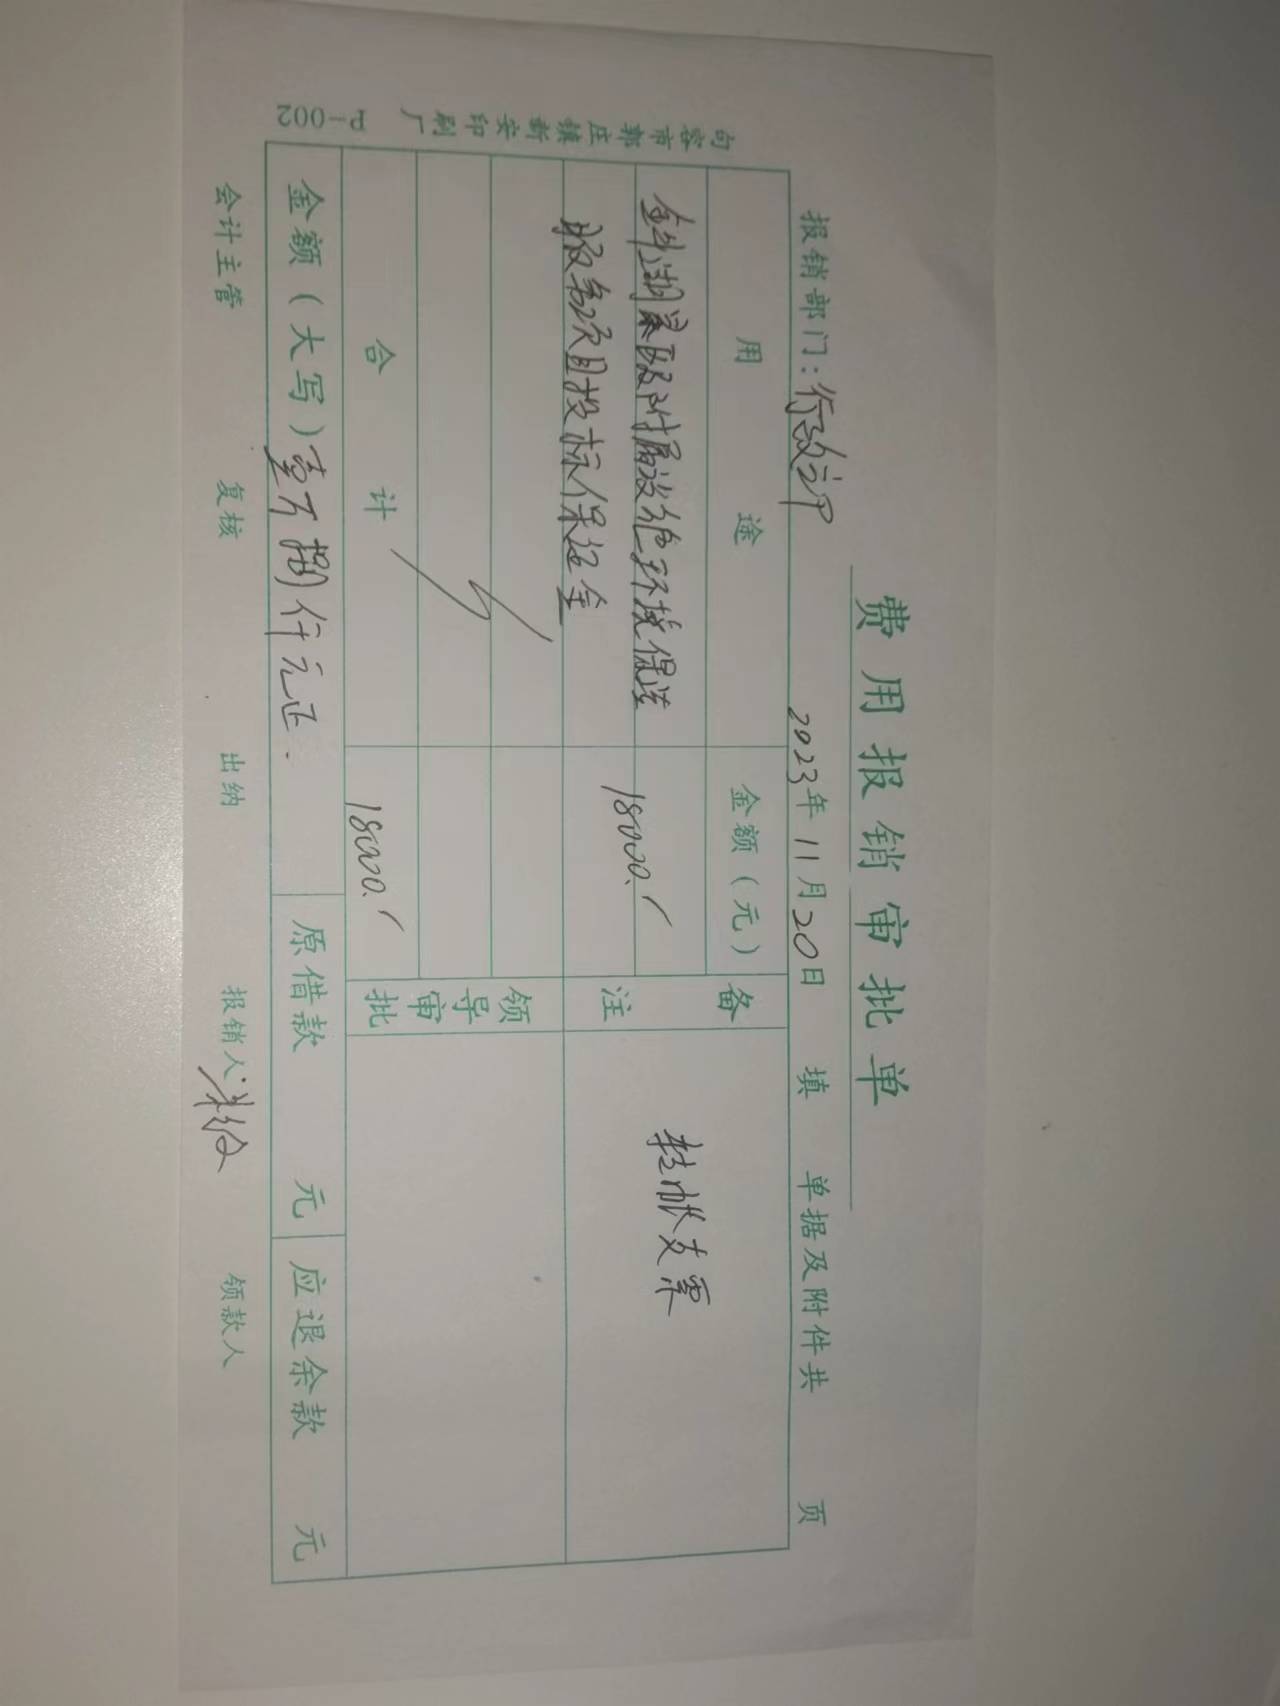 费用报销审批单
报销部门：行政部 2023年11月20日 填 单据及附件共 页
用途 金额（元） 备注 转帐支票
湖景区及附属设施环境保洁
服务项目投标保证金 18000.
领导审批
合计 18000.
金额（大写）壹万捌仟元正. 原借款 元 应退余款 元
会计主管 复核 出纳 报销人 领款人
句容市郭庄镇新安印刷厂 P-002